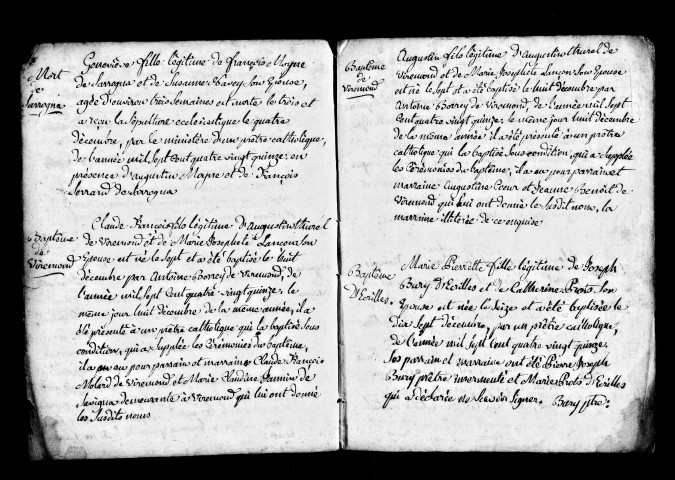 Mort
de
Sarrogna
Geneviève fille légitime de françois Moyne
de Sarrogna et de Susanne Varey son Epouse,
agée d'environ trois semaines est morte le trois et
a reçu la sépulture ecclésiastique le quatre
décembre, par le ministère d'un prêtre catholique,
de l'année mil sept cent quatre vingt quinze en
présence d'augustin Moyne et de François
de Sarrogna
Baptême
de
Viremond
Claude François fils légitime d'augustin
de Viremond et de Marie Josephete Lancon son
Epouse est né le sept et a été baptisé le huit
décembre par Antoine de Viremond, de
l'année mil sept cent quatre vingt quinze. le
même jour huit décembre de la même année, il a
été présenté a un prêtre catholique qui la baptisé sous
condition, qui a supplée les Cérémonies du baptême,
il a eu pour parrain et marraine Claude François
Molard de Viremond et Marie Claudine de
Savigna demeurante à Viremond qui lui ont donné
les susdits noms
Baptême
de
Viremond
Augustin fils légitime d'Augustin de
Viremond et de Marie Josephete Lançon son Epouse
est né le sept et a été baptisé le huit décembre par
Antoine de Viremond, de l'année mil sept
cent quatre vingt quinze. le même jour huit décembre
de la même année il a été présenté a un prêtre
catholique qui la baptisé sous condition, qui a supplée
les Cérémonies du baptême; il a eu pour parrain et
marraine Augustine Cœur et Jeanne Benoît de
Viremond qui lui ont donné le susdit nom, la
marraine illiterée de ce enquise
Baptême
d'Ecrilles.
Marie Pierrette fille légitime de Joseph
Bury d'Ecrilles et de Catherine Prots son
Epouse est née le seize et a été baptisée le
dix sept décembre, par un prêtre catholique,
de l'année mil sept cent quatre vingt quinze.
Ses parrain et marraine ont été Pierre Joseph
Bury prêtre insermenté et Marie Prots d'Ecrilles
qui a déclarée ne scavoir signer. Bury ptre.